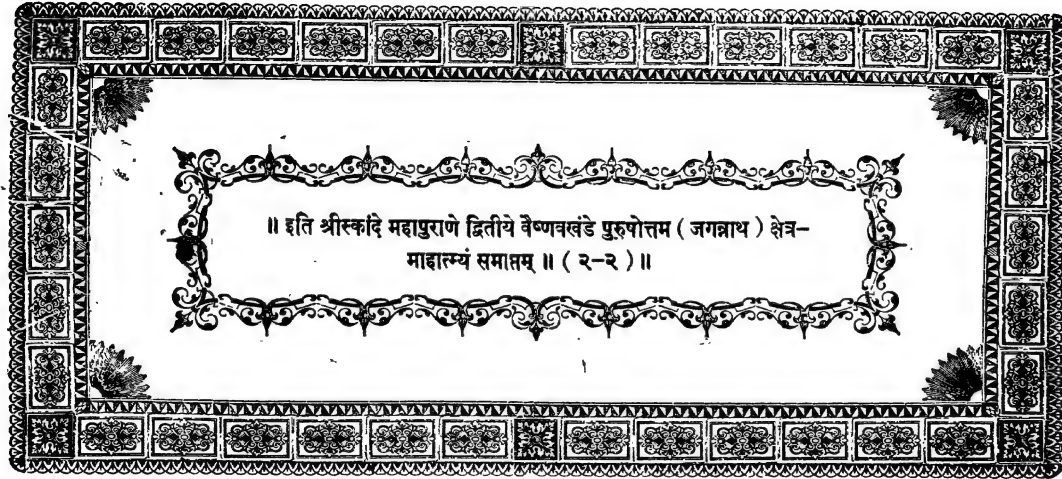 ॥ इति श्रीस्कांदे महापुराणे द्वितीये वैष्णवखंडे पुरुषोत्तम ( जगन्नाथ ) क्षेत्र-
माहात्म्यं समाप्तम् ॥ ( २-२ ) ॥